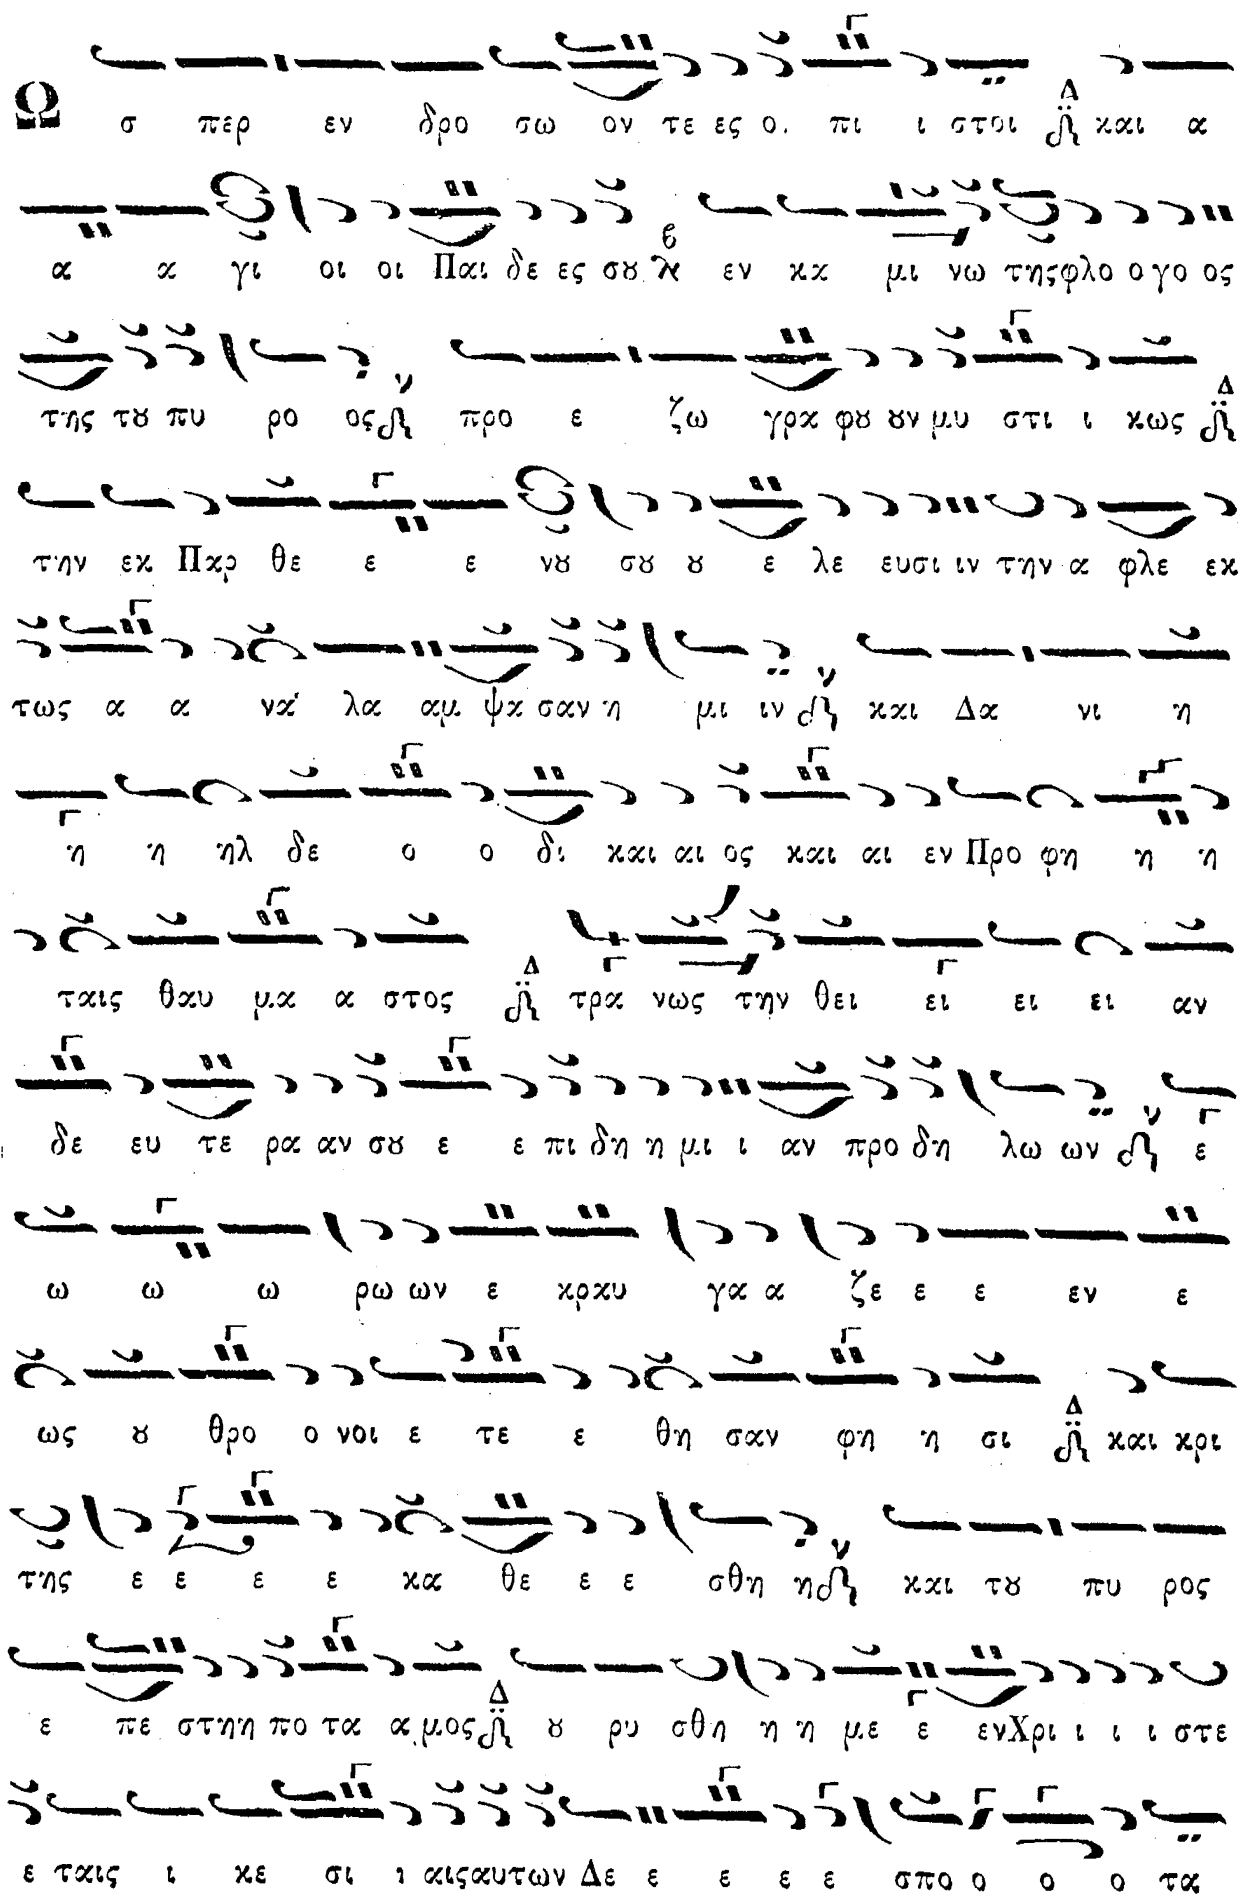 Ω σ περ εν δρο σω ον τε ες ο. πι ι στοι Δ και α
α α γι οι οι Παι δε ες σȣ εν κα μι νω της φλο ο γο ος
της τȣ πυ ρο ος ν προ ε ζω γρα φȣ ȣν μυ στι ι κως Δ
την εκ Παρ θε ε ε νȣ σȣ ȣ ε λε ευσι ιν την α φλε εκ
τως α α να λα αμ ψα σαν η μι ιν ν και Δα νι η
η η ηλ δε ο ο δι και αι ος και αι εν Προ φη η η
ταις θαυ μα α στος Δ τρα νως την θει ει ει ει αν
δε ευ τε ρα αν σȣ ε ε πι δη η μι ι αν προ δη λω ων ν ε
ω ω ω ρω ων ε κραυ γα α ζε ε ε εν ε
ως ȣ θρο ο νοι ε τε ε θη σαν φη η σι Δ και κρι
της ε ε ε ε κα θε ε ε σθη η ν και τȣ πυ ρος
ε πε στη η πο τα α μος Δ ȣ ρυ σθη η η με ε εν Χρι ι ι ι στε
ε ταις ι κε σι ι αις αυτων Δε ε ε ε ε σπο ο ο ο τα